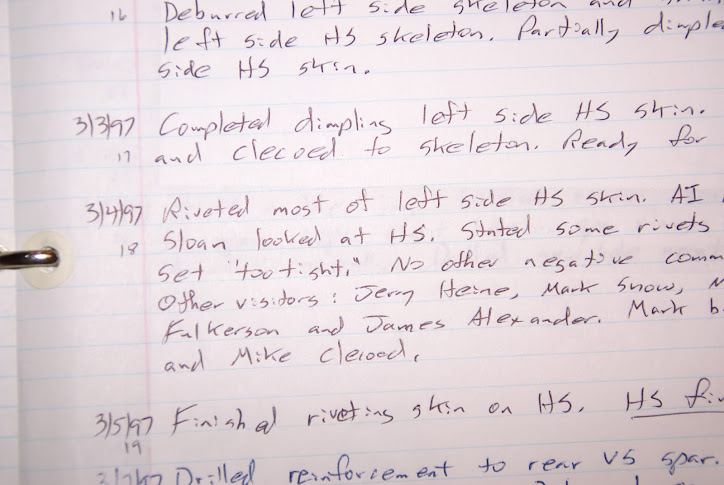 16 Deburred left side skeleton and
left side HS skeleton. Partially dimpled
side HS skin.
3/3/97 Completed dimpling left side HS skin.
17 and clecoed to skeleton. Ready for
3/4/97 Riveted most of left side HS skin. AI
18 Sloan looked at HS. Stated some rivets
set "too tight." No other negative comm
Other visitors: Jerry Heine, Mark Snow, M
Fulkerson and James Alexander. Mark b
and Mike Clecoed.
3/5/97 Finished riveting skin on HS. HS fin
19
Drilled reinforcement to rear VS spar.